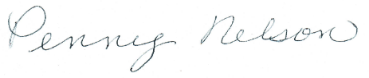 Penny Nelson